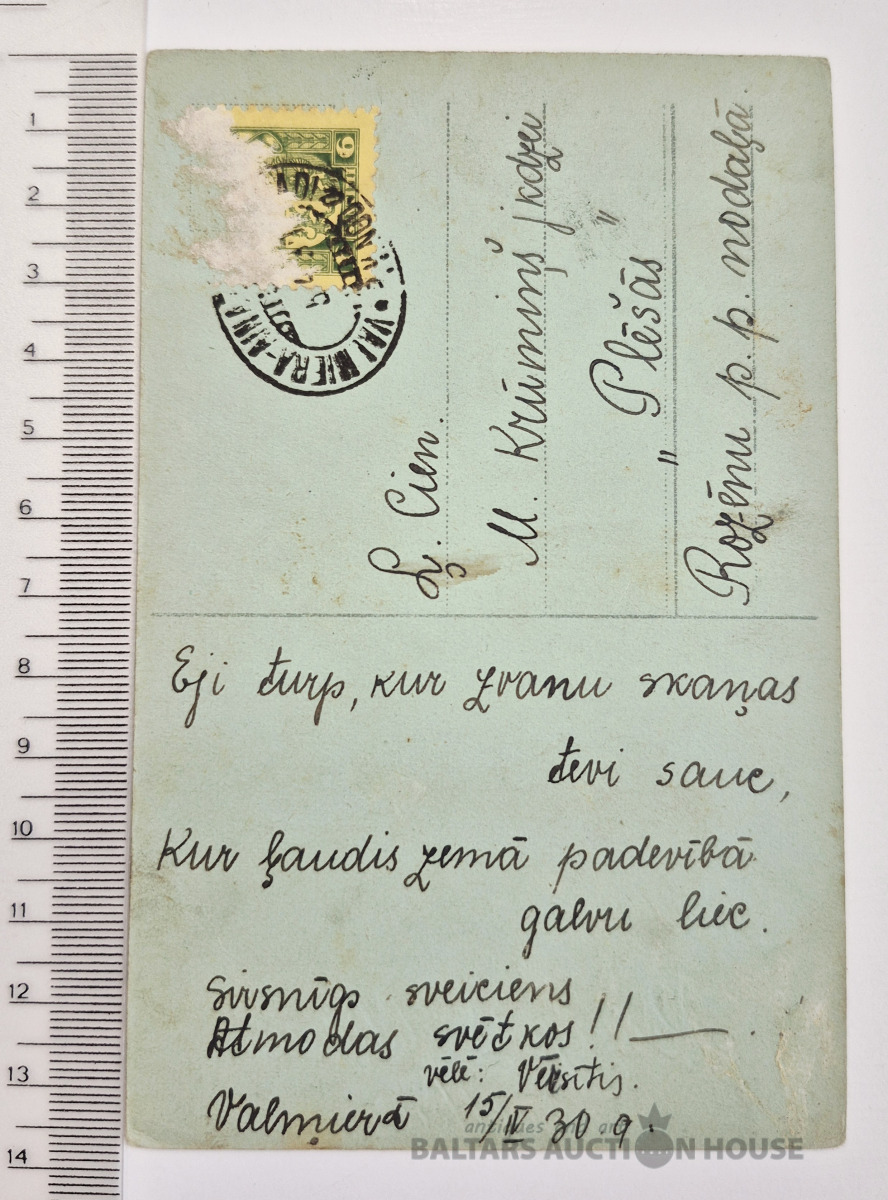 6
VALMIERA-AINA
Ļ. Cien.
M. Krūmiņš jkdzei
" Plēsās "
Rozēnu p. p. nodaļā.
Eji turp, kur zvanu skaņas
tevi sauc,
Kur ļaudis zemā padevībā
galvu liec.
Sirsnīgs sveiciens
Atmodas svētkos!!
vēlē:
Valmierā 15/IV 30 g.
antiques art
BALTARS AUCTION HOUSE
1
2
3
4
5
6
7
8
9
10
11
12
13
14